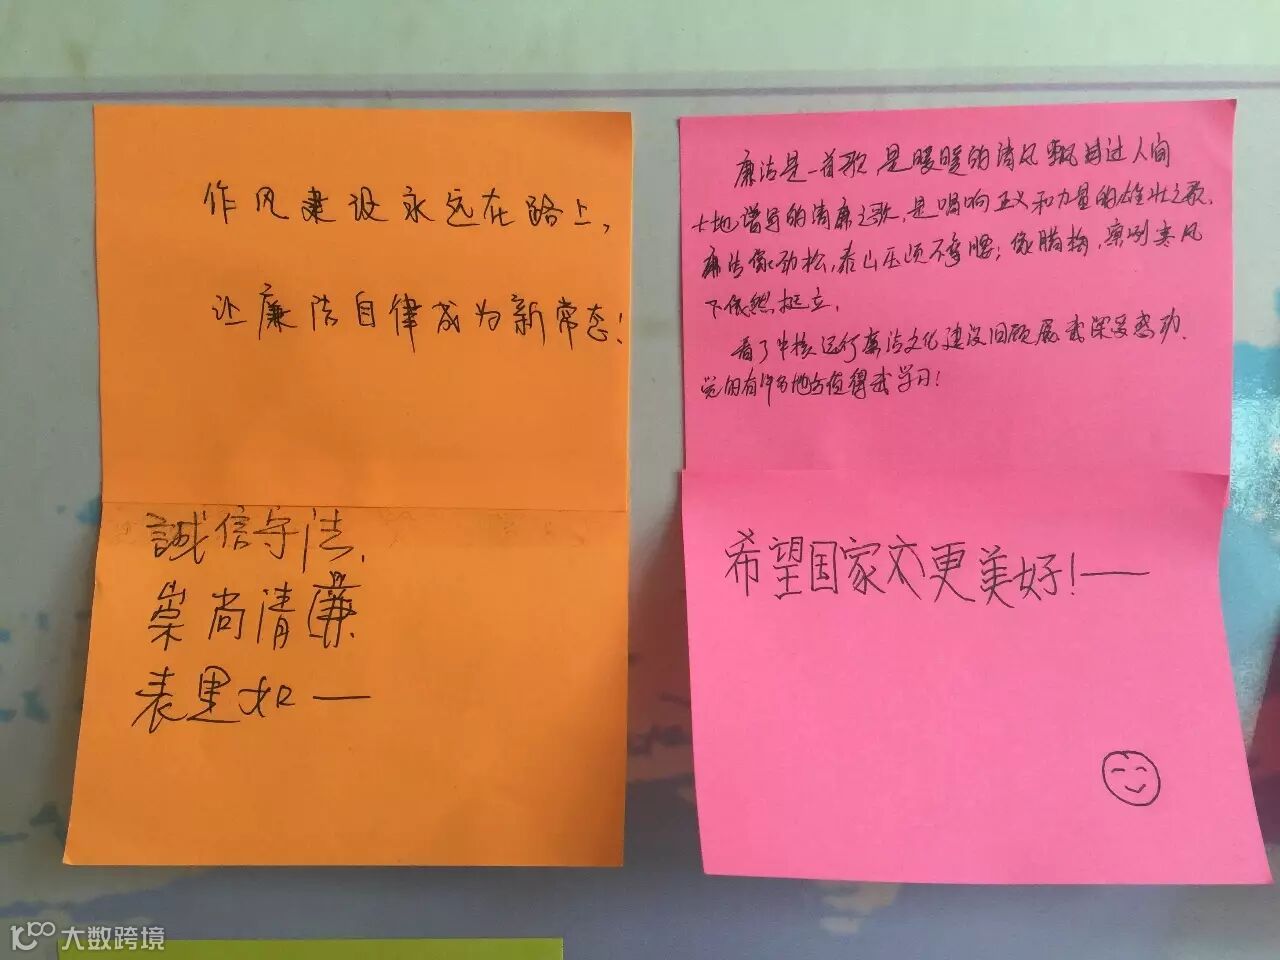 作风建设永远在路上，
让廉洁自律成为新常态！
誠信守法，
崇尚清廉
表里如一
廉洁是一首歌 是暖暖的清风飘过人间
大地谱写的清廉之歌，是唱响正义和力量的雄壮之歌．
廉洁像劲松，泰山压顶不弯腰；像腊梅，凛冽寒风
下依然挺立．
看了中核运行廉洁文化建设回顾展我深受感动．
觉的有许多地方值得我学习！
希望国家更美好！——
大数跨境